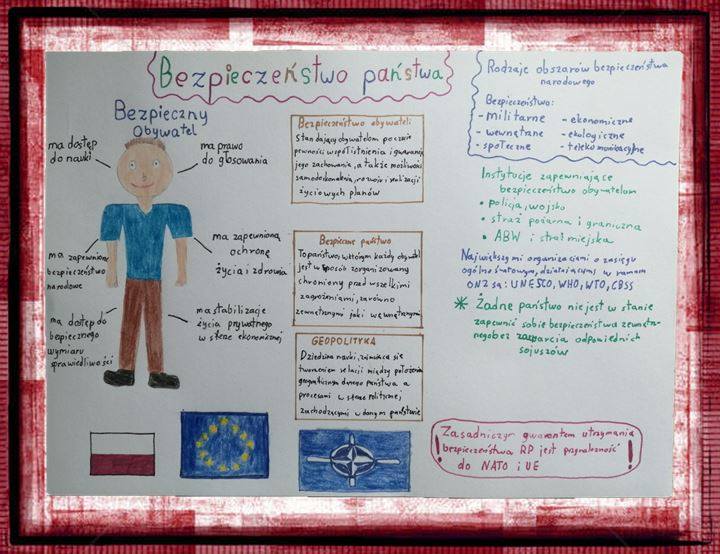 Bezpieczeństwo państwa
Bezpieczny
Obywatel
ma dostęp
do nauki
ma prawo
do głosowania
ma zapewnione
bezpieczeństwo
narodowe
ma zapewnioną
ochronę
życia i zdrowia
ma dostęp do
bezpiecznego
wymiaru
sprawiedliwości
ma stabilizację
życia prywatnego
w sferze ekonomicznej
Bezpieczeństwo obywateli
Stan dający obywatelom poczucie
pewności współistnienia i gwarancję
jego zachowania, a także możliwość
samodoskonalenia, rozwoju i realizacji
życiowych planów
Bezpieczne państwo
To państwo w którym każdy obywatel
jest w sposób zorganizowany
chroniony przed wszelkimi
zagrożeniami, zarówno
zewnętrznymi jak i wewnętrznymi
GEOPOLITYKA
Dziedzina nauki, zajmująca się
tworzeniem relacji między położeniem
geograficznym danego państwa a
procesami w sferze politycznej
zachodzącymi w danym państwie
Rodzaje obszarów bezpieczeństwa
narodowego
Bezpieczeństwo:
- militarne - ekonomiczne
- wewnętrzne - ekologiczne
- społeczne - telekomunikacyjne
Instytucje zapewniające
bezpieczeństwo obywatelom
• policja, wojsko
• straż pożarna i graniczna
• ABW i straż miejska
Największymi organizacjami o zasięgu
ogólnoświatowym, działającymi w ramach
ONZ są: UNESCO, WHO, WTO, CBSS
* Żadne państwo nie jest w stanie
zapewnić sobie bezpieczeństwa zewnętrz-
nego bez zawarcia odpowiednich
sojuszów
Zasadniczym gwarantem utrzymania
bezpieczeństwa RP jest przynależność
! do NATO i UE !